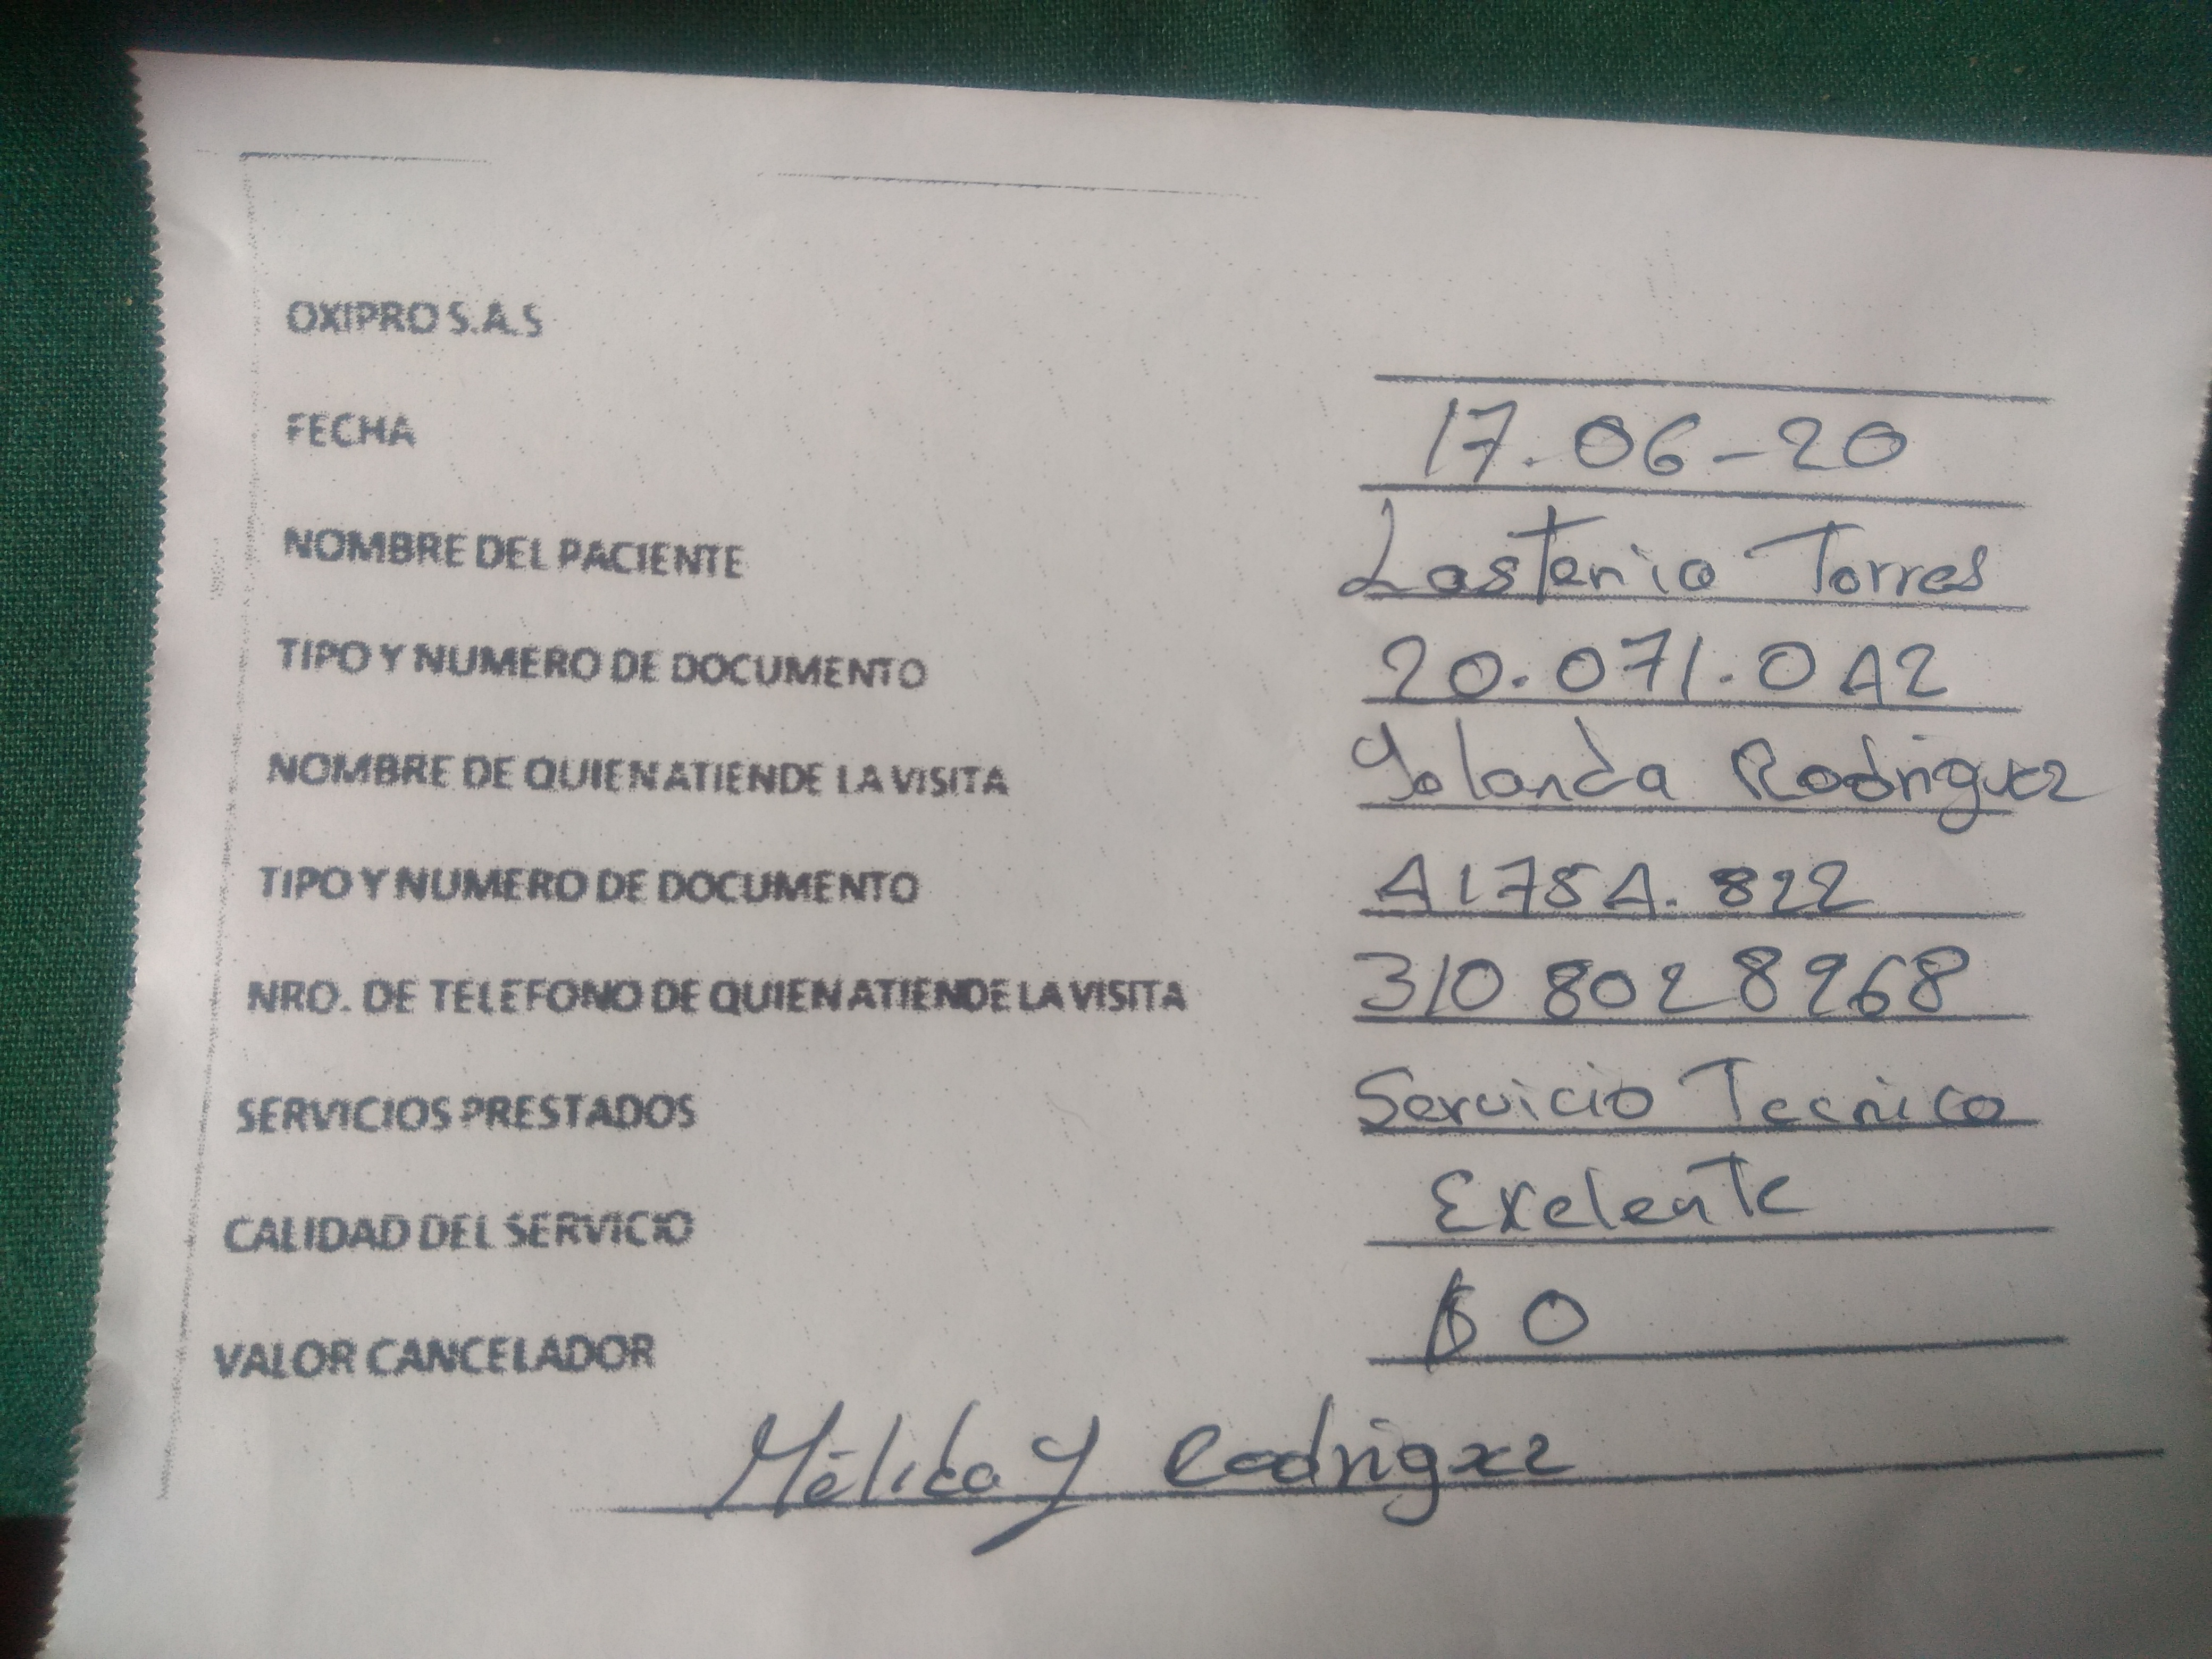 OXIPRO S.A.S
FECHA 17.06-20
NOMBRE DEL PACIENTE Lastenia Torres
TIPO Y NUMERO DE DOCUMENTO 20.071.042
NOMBRE DE QUIEN ATIENDE LA VISITA Yolanda Rodriguez
TIPO Y NUMERO DE DOCUMENTO 41754.822
NRO. DE TELEFONO DE QUIEN ATIENDE LA VISITA 310 8028968
SERVICIOS PRESTADOS Servicio Tecnico
CALIDAD DEL SERVICIO Exelente
VALOR CANCELADOR $ 0
Mélida Y Rodriguez